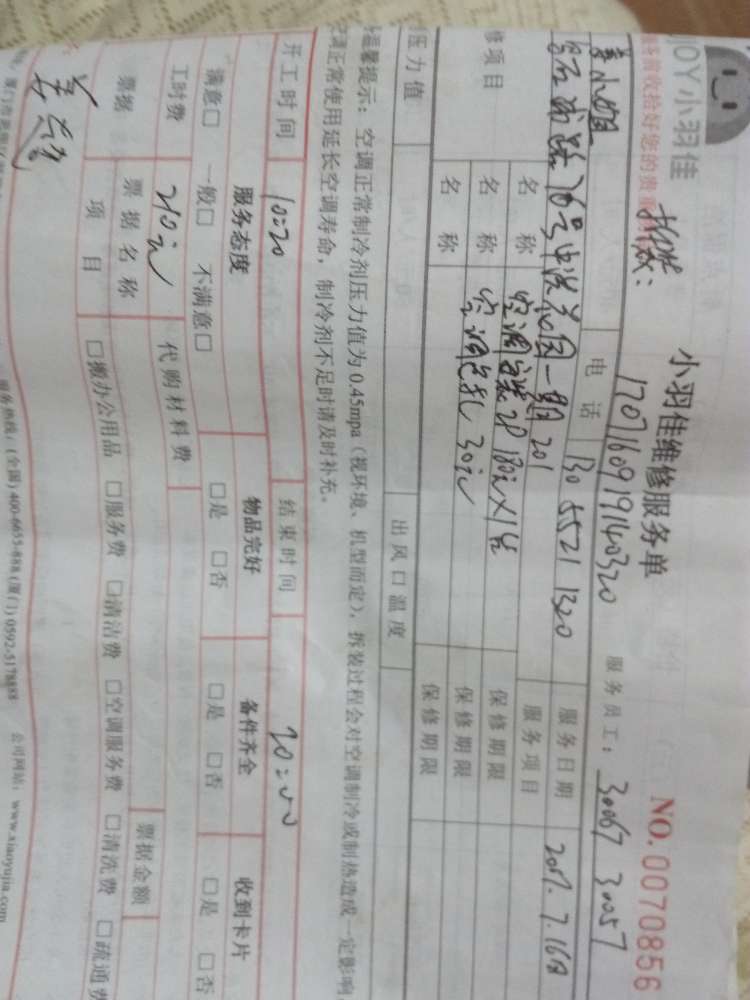 JOY小羽佳
小羽佳维修服务单
NO.0070856
服务前收拾好您的贵重
170716091940320
服务员工：30067 30057
姜小姐
电话 130 5521 1320
服务日期 2017.7.16日
76号中洪花园一期201
服务项目
修项目
名称 空调安装2P 180元×1台
保修期限
名称 空调打孔 30元
保修期限
名称
保修期限
压力值
出风口温度
温馨提示：空调正常制冷剂压力值为0.45mpa（视环境、机型而定），拆装过程会对空调制冷或制热造成一定影响，
正常使用延长空调寿命，制冷剂不足时请及时补充。
开工时间 10:20
结束时间 20:00
服务态度 物品完好 备件齐全 收到卡片
满意□ 一般□ 不满意□ □是 □否 □是 □否 □是 □否
工时费 210元 代购材料费
票据 票据名称 票据金额
项目 □搬办公用品 □服务费 □清洁费 □空调服务费 □清洗费 □疏通费
服务热线：(全国) 400-6655-888 (厦门) 0592-5178888 公司网站：www.xiaoyujia.com